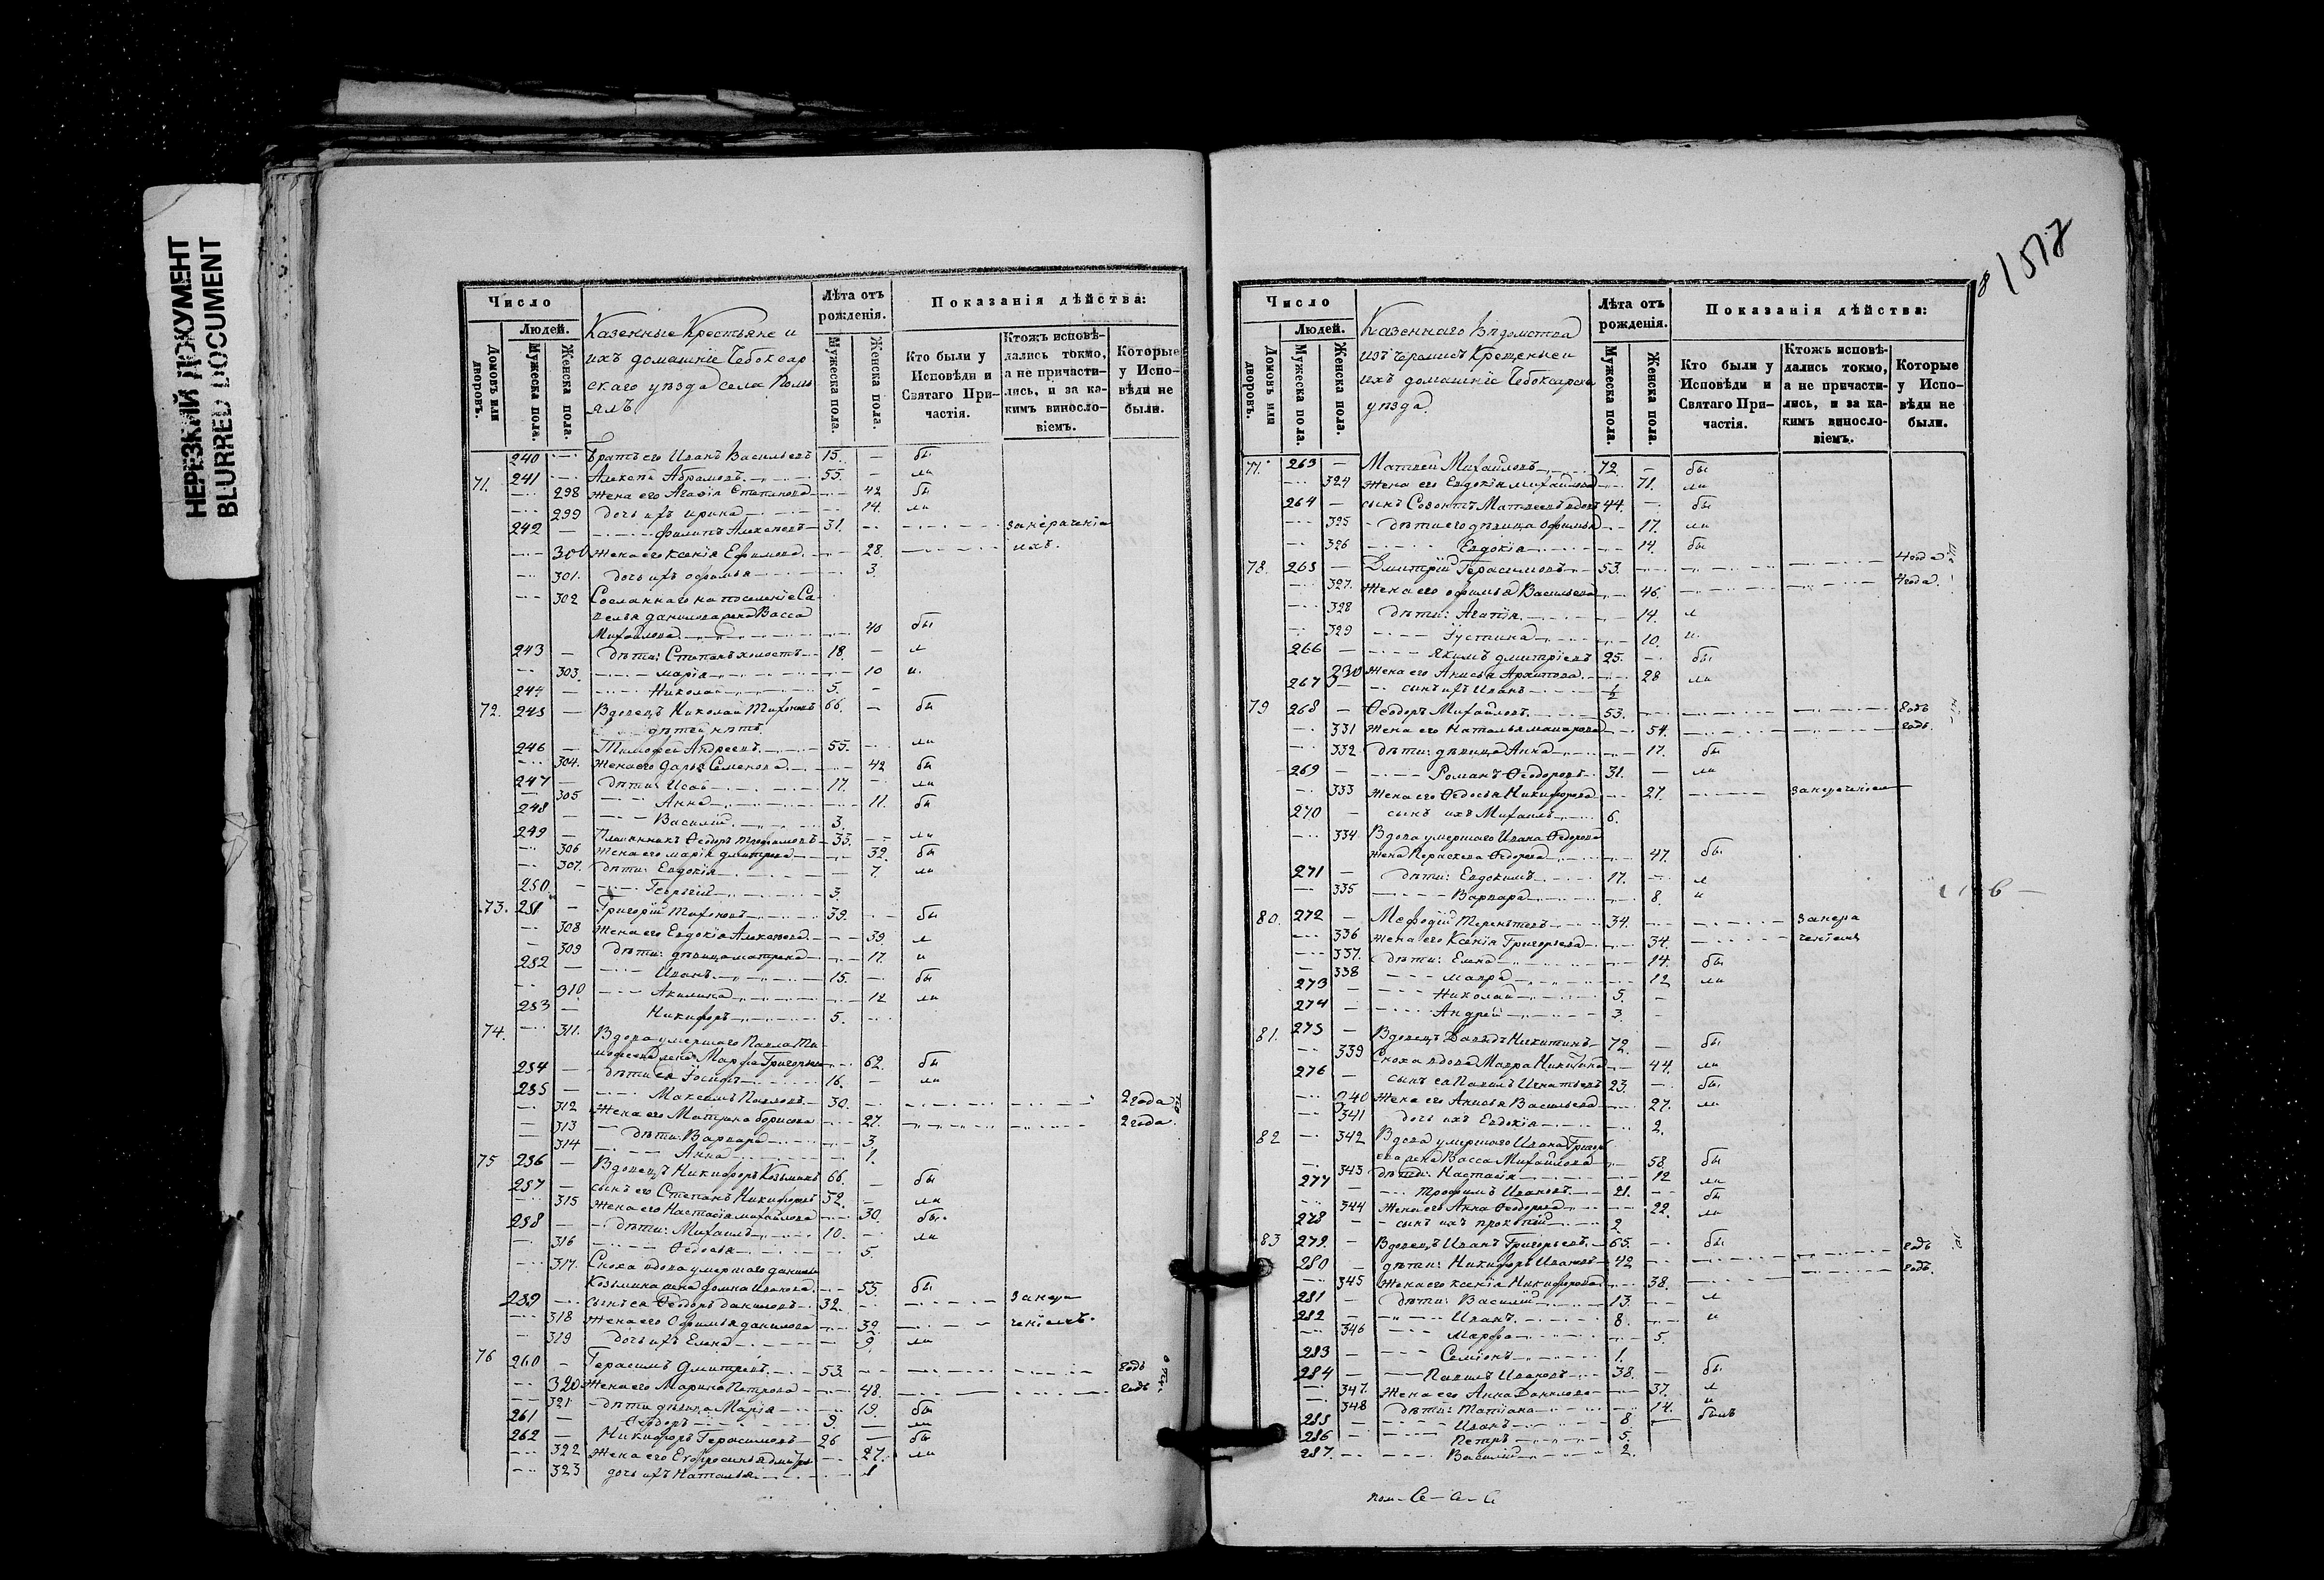 НЕРЕЗКИЙ ДОКУМЕНТ
BLURRED DOCUMENT
Число
Людей.
Домовъ или дворовъ.
Мужеска пола.
Женска пола.
Казенные Крестьяне и
ихъ домашніе Чебоксар
скаго уѣзда села Помъ
ялъ
Лѣта отъ рожденія.
Мужеска пола.
Женска пола.
Показанія дѣйства:
Кто были у Исповѣди и Святаго Причастія.
Ктожъ исповѣдались токмо, а не причастились, и за какимъ винословіемъ.
Которые у Исповѣди не были.
240 Братъ его Иванъ Васильевъ 15. — бы
71. 241 Алексѣй Абрамовъ 55. — ли
298 Жена его Агафія Степанова 42 бы
299 дочь ихъ Ирина 14. ли
242 Филипъ Алексѣевъ 31.
300 Жена его Ксенія Ефимова 28. ихъ.
301. дочь ихъ Офимья 3.
302 Сосланнаго на поселеніе Са
велья Данилова жена Васса
Михайлова 40 бы
243 — дѣти: Степанъ холостъ 18. — л
303. Марія 10 и.
244 — Николай 5. —
72. 245 — Вдовецъ Николай Тихоновъ 66. — бы
дѣтей нѣтъ.
246 — Тимофей Андреевъ 55. ли
304. Жена его Дарья Семенова 42 бы
247 — дѣти: Исай 17. ли
305 Анна 11. бы
248 Василій 3.
249 — Племянникъ Ѳеодоръ Трофимовъ 33. ли
306 Жена его Марія Дмитріева 32. бы
307. дѣти: Евдокія 7. ли
250 Георгій 3.
73. 251 — Григорій Тихоновъ 39. бы
308 Жена его Евдокія Алексѣева 39. л
309 дѣти: дѣвица Матрена 17. и
252 — Иванъ 15. бы
310 Акилина 12 ли
253 — Никифоръ 5.
74. 311. Вдова умершаго Павла Ти
мофеева жена Марфа Григорьева 62. бы
254 — дѣти ея Іосифъ 16. — ли
255 — Максимъ Павловъ 30. 2 года
312 Жена его Матрена Борисова 27. 2 года.
313 — дѣти: Варвара 3.
314 Анна 1.
75 256 — Вдовецъ Никифоръ Козьминъ 66. — бы
257 — сынъ его Степанъ Никифоровъ 32. — ли
315 Жена его Настасія Михайлова 30. бы.
258 — дѣти: Михаилъ 10. ли
316 Ѳедосья 5.
317. Сноха вдова умершаго Данилы
Козьмина жена Домна Иванова 55. бы
259 сынъ ея Ѳеодоръ Даниловъ 32.
318 Жена его Офимья Данилова 39.
319 дочь ихъ Елена 9. ли
76 260 — Герасимъ Дмитріевъ 53. годъ
320 Жена его Марина Петрова 48. годъ
321 дѣти дѣвица Марія 19. бы
261 — Ѳеодоръ 9. — ли
262 — Никифоръ Герасимовъ 26 — бы
322 Жена его Ефросинья Дмитр 27. ли
323 дочь ихъ Наталья 1
Число
Людей.
Домовъ или дворовъ.
Мужеска пола.
Женска пола.
Казеннаго Вѣдомства
изъ Черемисъ Крещеные и
ихъ домашніе Чебоксарска
уѣзда.
Лѣта отъ рожденія.
Мужеска пола.
Женска пола.
Показанія дѣйства:
Кто были у Исповѣди и Святаго Причастія.
Ктожъ исповѣдались токмо, а не причастились, и за какимъ винословіемъ.
Которые у Исповѣди не были.
77. 263 — Матвей Михайловъ 72. — бы
324 Жена его Евдокія Михайлова 71. ли
264 — сынъ Созонтъ Матвеевъ вдовъ 44. — бы
325 дѣти его дѣвица Офимья 17. ли
326 Евдокія 14. бы
78. 265 — Дмитрій Герасимовъ 53. 4 года
327. Жена его Офимья Васильева 46. 4 года.
328 дѣти: Агапія 14. л
329 Іустина 10. и.
266 — Якимъ Дмитріевъ 25. бы
230 Жена его Анисья Архипова 28 ли
267 — сынъ ихъ Иванъ ½
79 268 — Ѳеодоръ Михайловъ 53. годъ
331 Жена его Наталья Макарова 54. годъ.
332 дѣти: дѣвица Анна 17. бы
269 — Романъ Ѳеодоровъ 31. — ли
333 Жена его Ѳедосья Никифорова 27.
270 — сынъ ихъ Михаилъ 6.
334 Вдова умершаго Ивана Ѳедорова
жена Параскева Ѳедорова 47. бы
271 — дѣти: Евдокимъ 17. л
335 Варвара 8. и
80. 272 — Мефодій Терентьевъ 34.
336 Жена его Ксенія Григорьева 34.
337. дѣти: Елена 14. бы
338 Мавра 12 ли
273 — Николай 5. —
274 — Андрей 3.
81. 275 — Вдовецъ Давыдъ Никитинъ 72. — бы
339 Сноха вдова Мавра Никитина 44. ли
276 — сынъ ея Павелъ Игнатьевъ 23. бы
340 Жена его Анисья Васильева 27. ли
341 дочь ихъ Евдокія 2.
82 342 Вдова умершаго Ивана Григорь
ева жена Васса Михайлова 58. бы
343 дѣти: Настасія 12 ли
277 — Трофимъ Ивановъ 21. бы
344 Жена его Анна Ѳеодорова 22. ли
278 — сынъ ихъ Прокопій 2
83 279. — Вдовецъ Иванъ Григорьевъ 65. бы
280 — дѣти: Никифоръ Ивановъ 42 годъ
345 Жена его Ксенія Никифорова 38. годъ.
281 — дѣти: Василій 13. л
282 — Иванъ 8. и
346 Марфа 5.
283 — Семіонъ 1.
284 — Павелъ Ивановъ 38. — бы
347. Жена его Анна Данилова 37. л
348 дѣти: Татіана 14. и
285 — Иванъ 8 — былъ
286 — Петръ 5.
287. Василій 2.